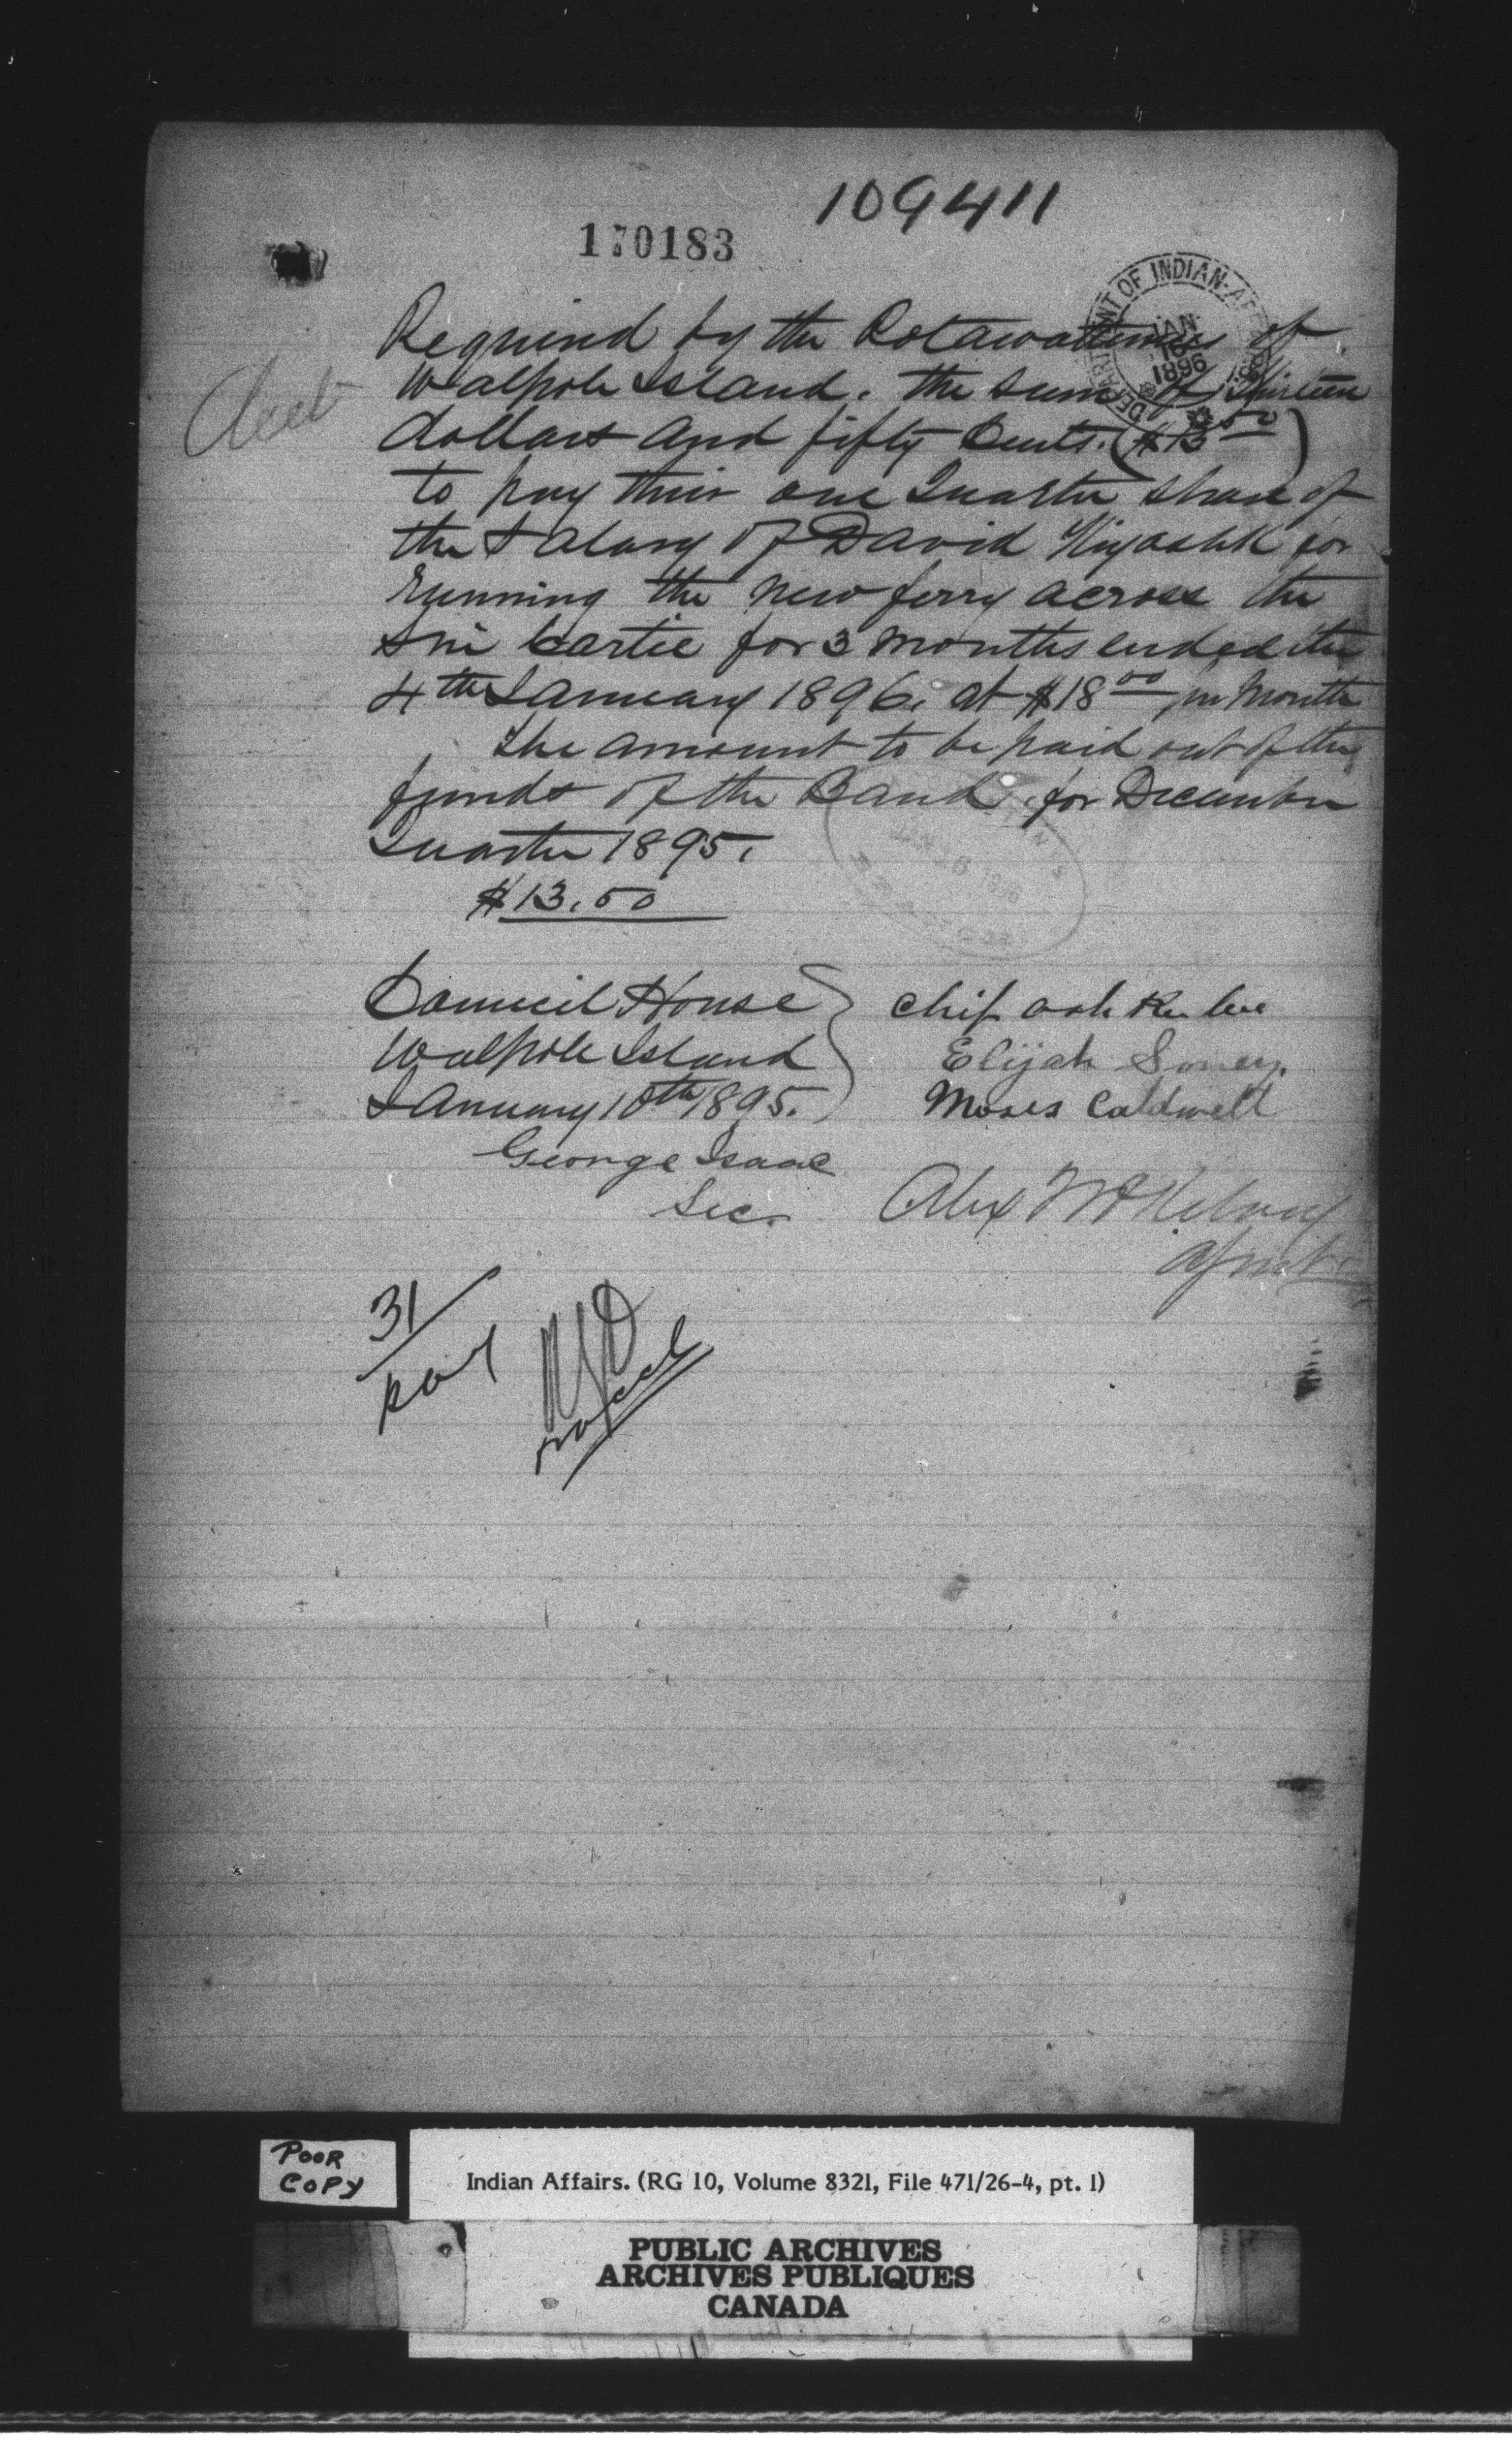 109411
170183
DEPARTMENT OF INDIAN AFFAIRS
JAN 16 1896
Acct
Required by the Potawattimies of
Walpole Island. the sum of thirteen
dollars and fifty Cents. ($13 50)
to pay their one Quarter share of
the Salary of David Kiyoshk for
running the new ferry across the
Sni Cartie for 3 months ended the
4th January 1896. at $18 00 per month
The amount to be paid out of the
funds of the Band for December
Quarter 1895.
$13.50
Council House
Walpole Island
January 10th 1895.
George Isaac
Sec.
Chif ash Ke bee
Elijah Soney.
Moses Caldwell
Alex McKelvey
Agent
31
Pay
POOR
COPY
Indian Affairs. (RG 10, Volume 8321, File 471/26-4, pt. 1)
PUBLIC ARCHIVES
ARCHIVES PUBLIQUES
CANADA